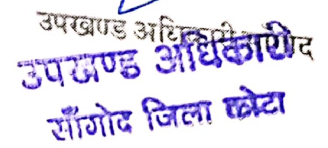 उपखण्ड अधिकारी सांगोद
उपखण्ड अधिकारी
साँगोद जिला कोटा